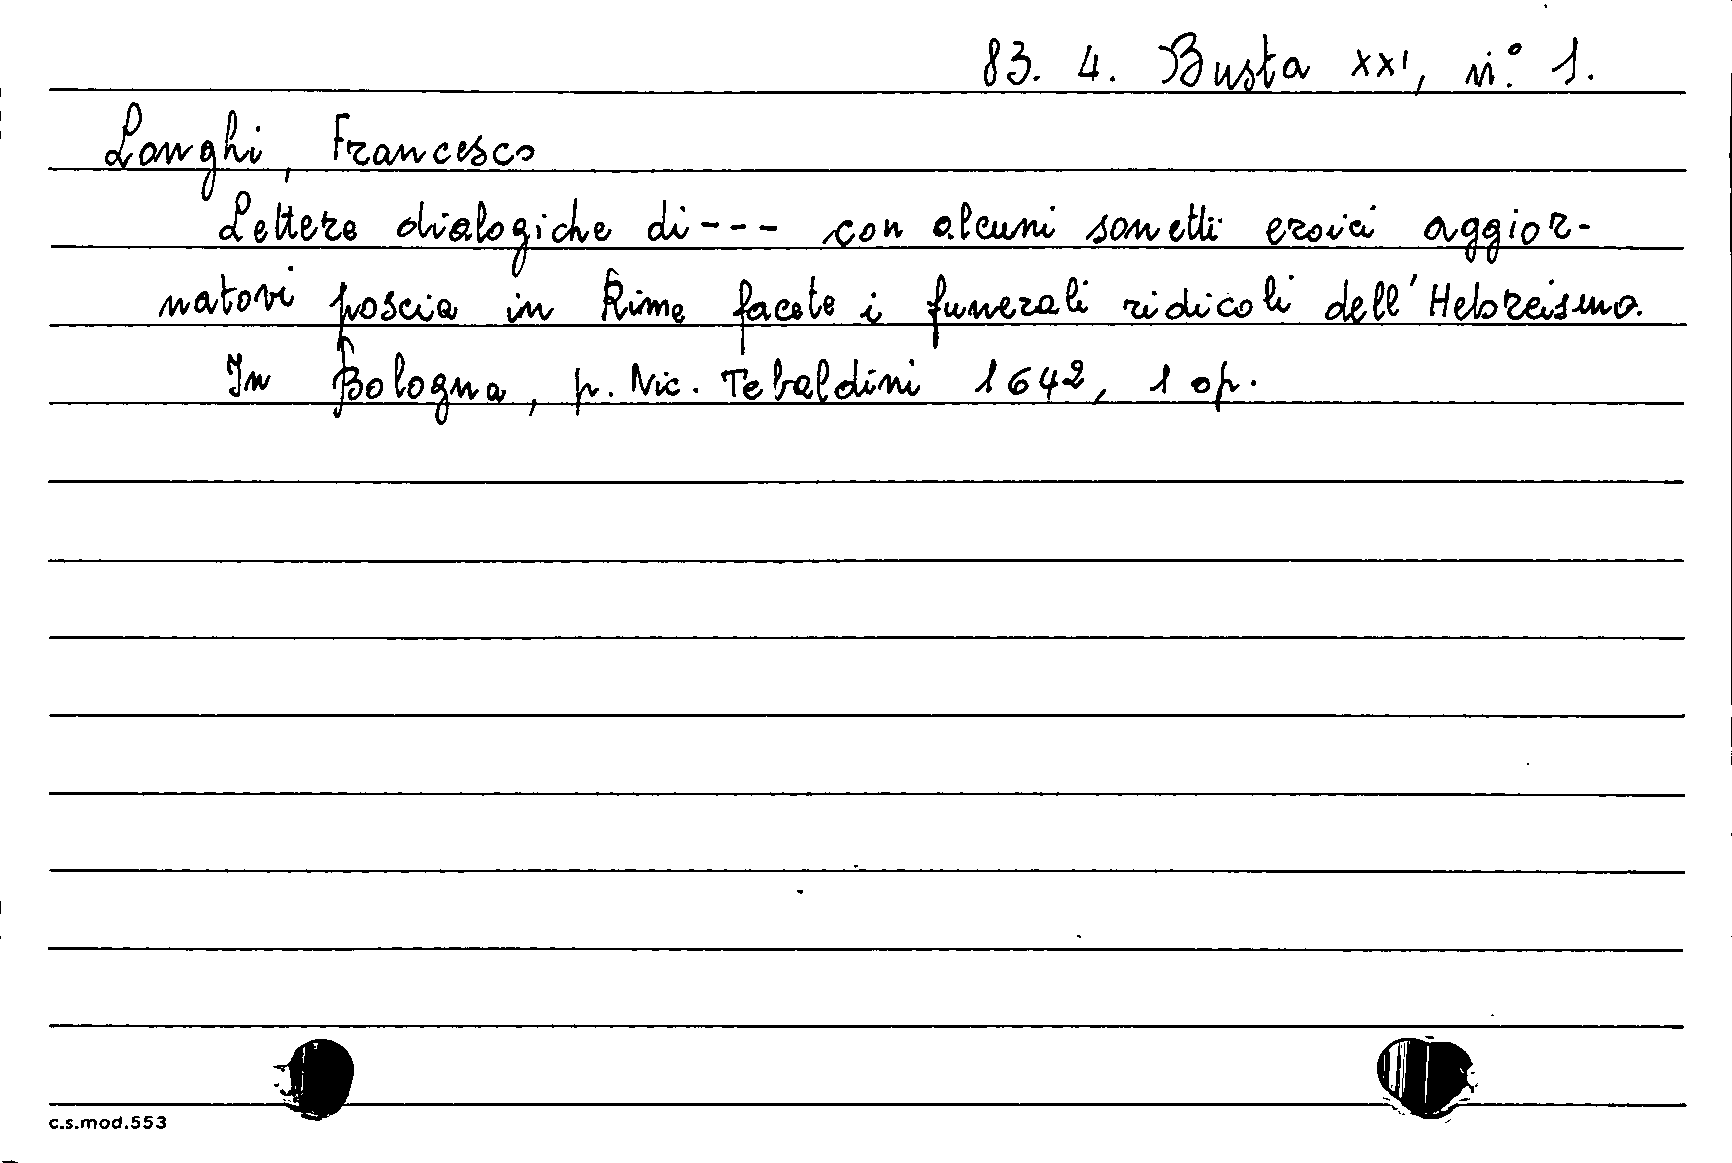 83. 4. Busta XXI, n.° 1.
Longhi, Francesco
Lettere dialogiche di --- con alcuni sonetti eroici aggior-
natovi poscia in Rime facete i funerali ridicoli dell'Hebreismo.
In Bologna, p. Nic. Tebaldini 1642, 1 op.
c.s.mod.553